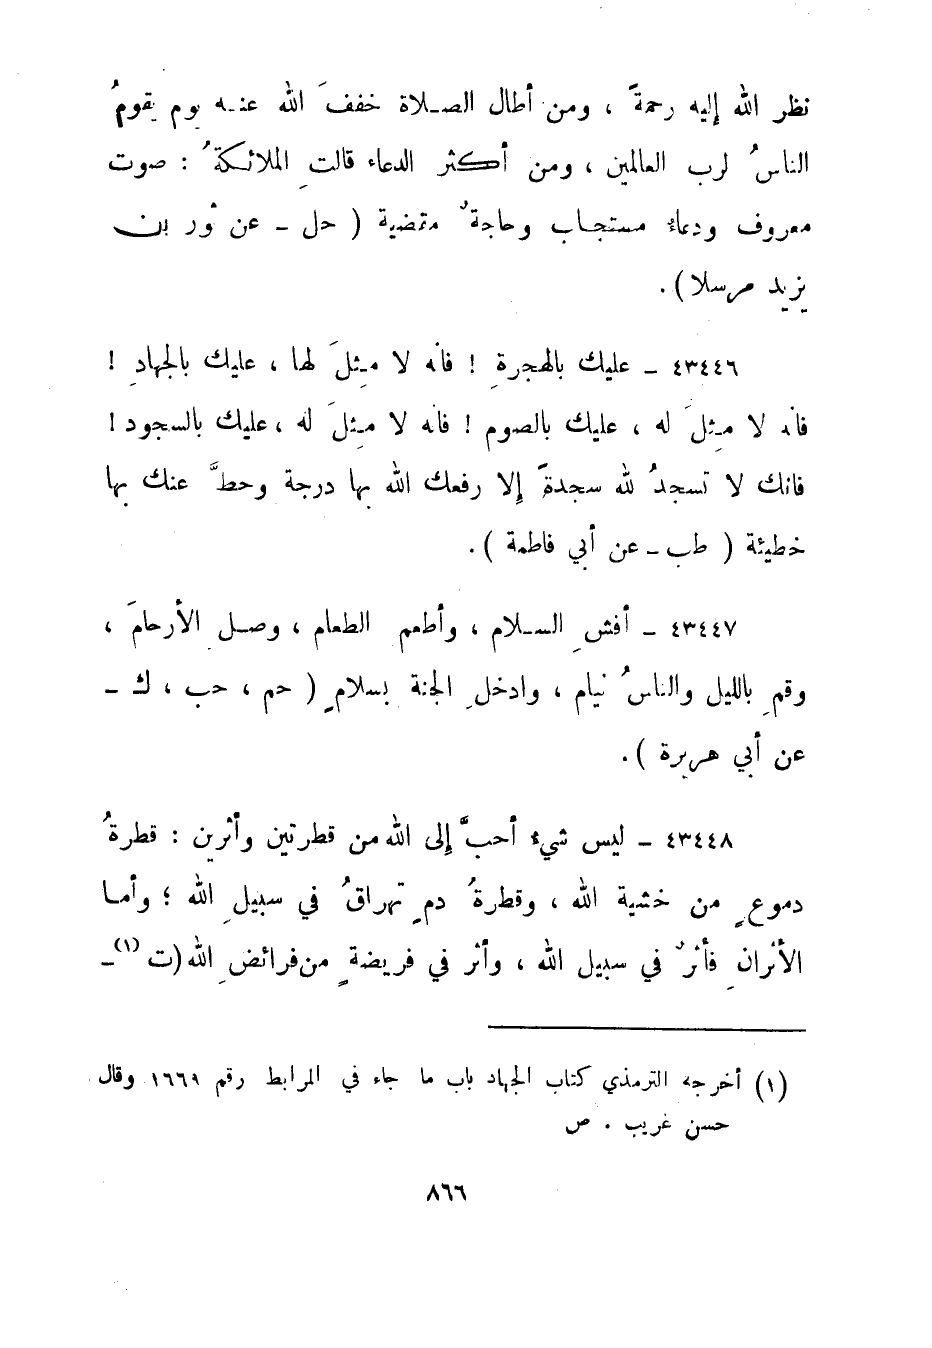 نظر الله إليه رحمةً ، ومن أطال الصلاة خففَ الله عنه يوم يقومُ
الناسُ لرب العالمين ، ومن أكثر الدعاء قالتِ الملائكةُ : صوت
معروف ودعاءٌ مستجاب وحاجةٌ مقضية ( حل - عن ثور بن
يزيد مرسلا ) .
٤٣٤٤٦ - عليك بالهجرةِ ! فانه لا مِثلَ لها ، عليك بالجهادِ !
فانه لا مِثلَ له ، عليك بالصوم ! فانه لا مِثلَ له ، عليك بالسجود !
فانك لا تسجدُ لله سجدةً إلا رفعك الله بها درجة وحطَّ عنك بها
خطيئة ( طب - عن أبي فاطمة ) .
٤٣٤٤٧ - أفشِ السلام ، وأطعم الطعام ، وصلِ الأرحامَ ،
وقمِ بالليل والناسُ نيام ، وادخلِ الجنة بسلامٍ ( حم ، حب ، ك -
عن أبي هريرة ) .
٤٣٤٤٨ - ليس شيء أحبَّ إلى الله من قطرتين وأثرين : قطرةُ
دموعٍ من خشية الله ، وقطرةُ دمٍ تهراقُ في سبيلِ الله ؛ وأما
الأثرانِ فأثرٌ في سبيل الله ، وأثر في فريضةٍ من فرائضِ الله ( ت (١) -
(١) أخرجه الترمذي كتاب الجهاد باب ما جاء في المرابط رقم ١٦٦٩ وقال
حسن غريب . ص
٨٦٦